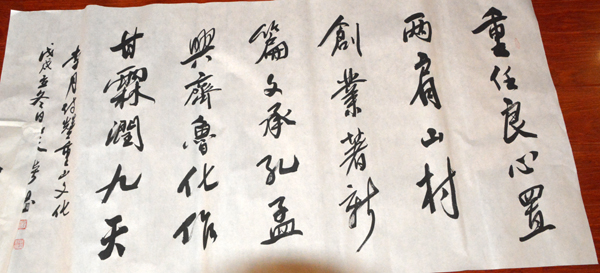 重任良心置
两肩山村
創業著新
篇文承孔孟
興齊魯化作
甘霖潤九天
李月付瑩重山文化
戊戌立冬日